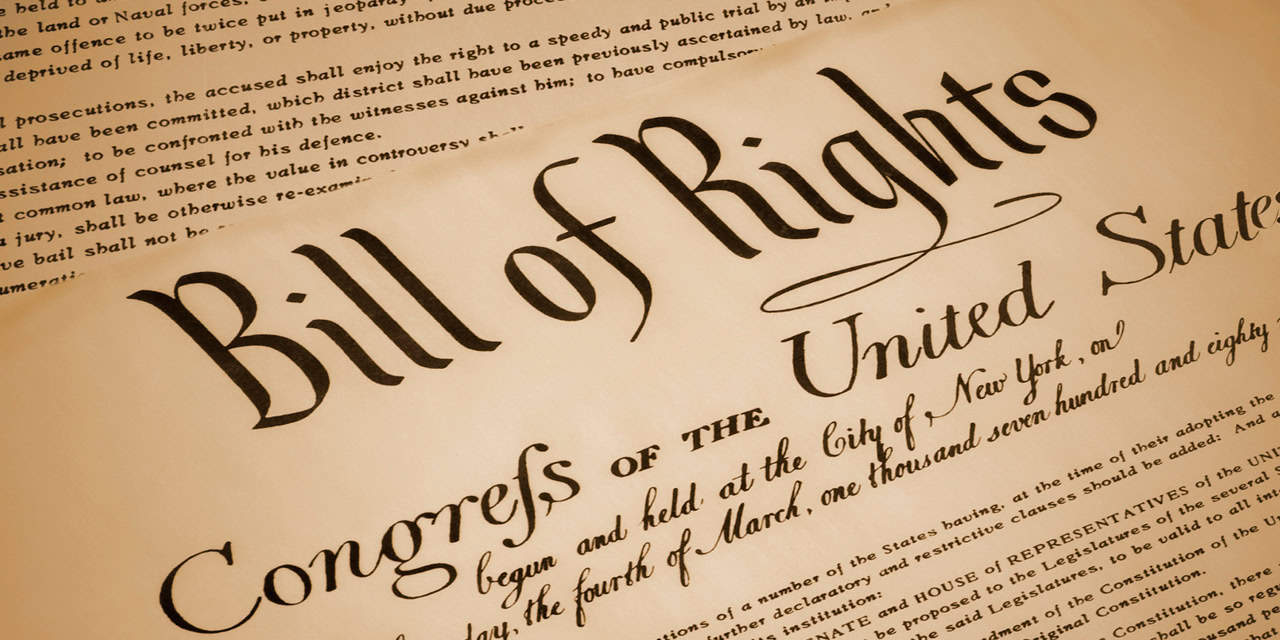 be held to
the land or Naval forces,
same offence to be twice put in jeopardy
deprived of life, liberty, or property, without due proc
prosecutions, the accused shall enjoy the right to a speedy and public trial by an
all have been committed, which district shall have been previously ascertained by law, an
sation; to be confronted with the witnesses against him; to have compulsory
ssistance of counsel for his defence.
t common law, where the value in controversy shall
a jury, shall be otherwise re-exami
ve bail shall not be
umerati
Bill of Rights
Congreſs OF THE United States
begun and held at the City of New York, on
day, the fourth of March, one thousand seven hundred and eighty
tions of a number of the States having, at the time of their adopting the
further declaratory and restrictive clauses should be added: And a
ts institution:
ENATE and HOUSE of REPRESENTATIVES of the UNI
be proposed to the Legislatures of the several S
the said Legislatures, to be valid to all int
dment of the Constitution of the Un
riginal Constitution.
Constitution, there
shall be so regu
sand